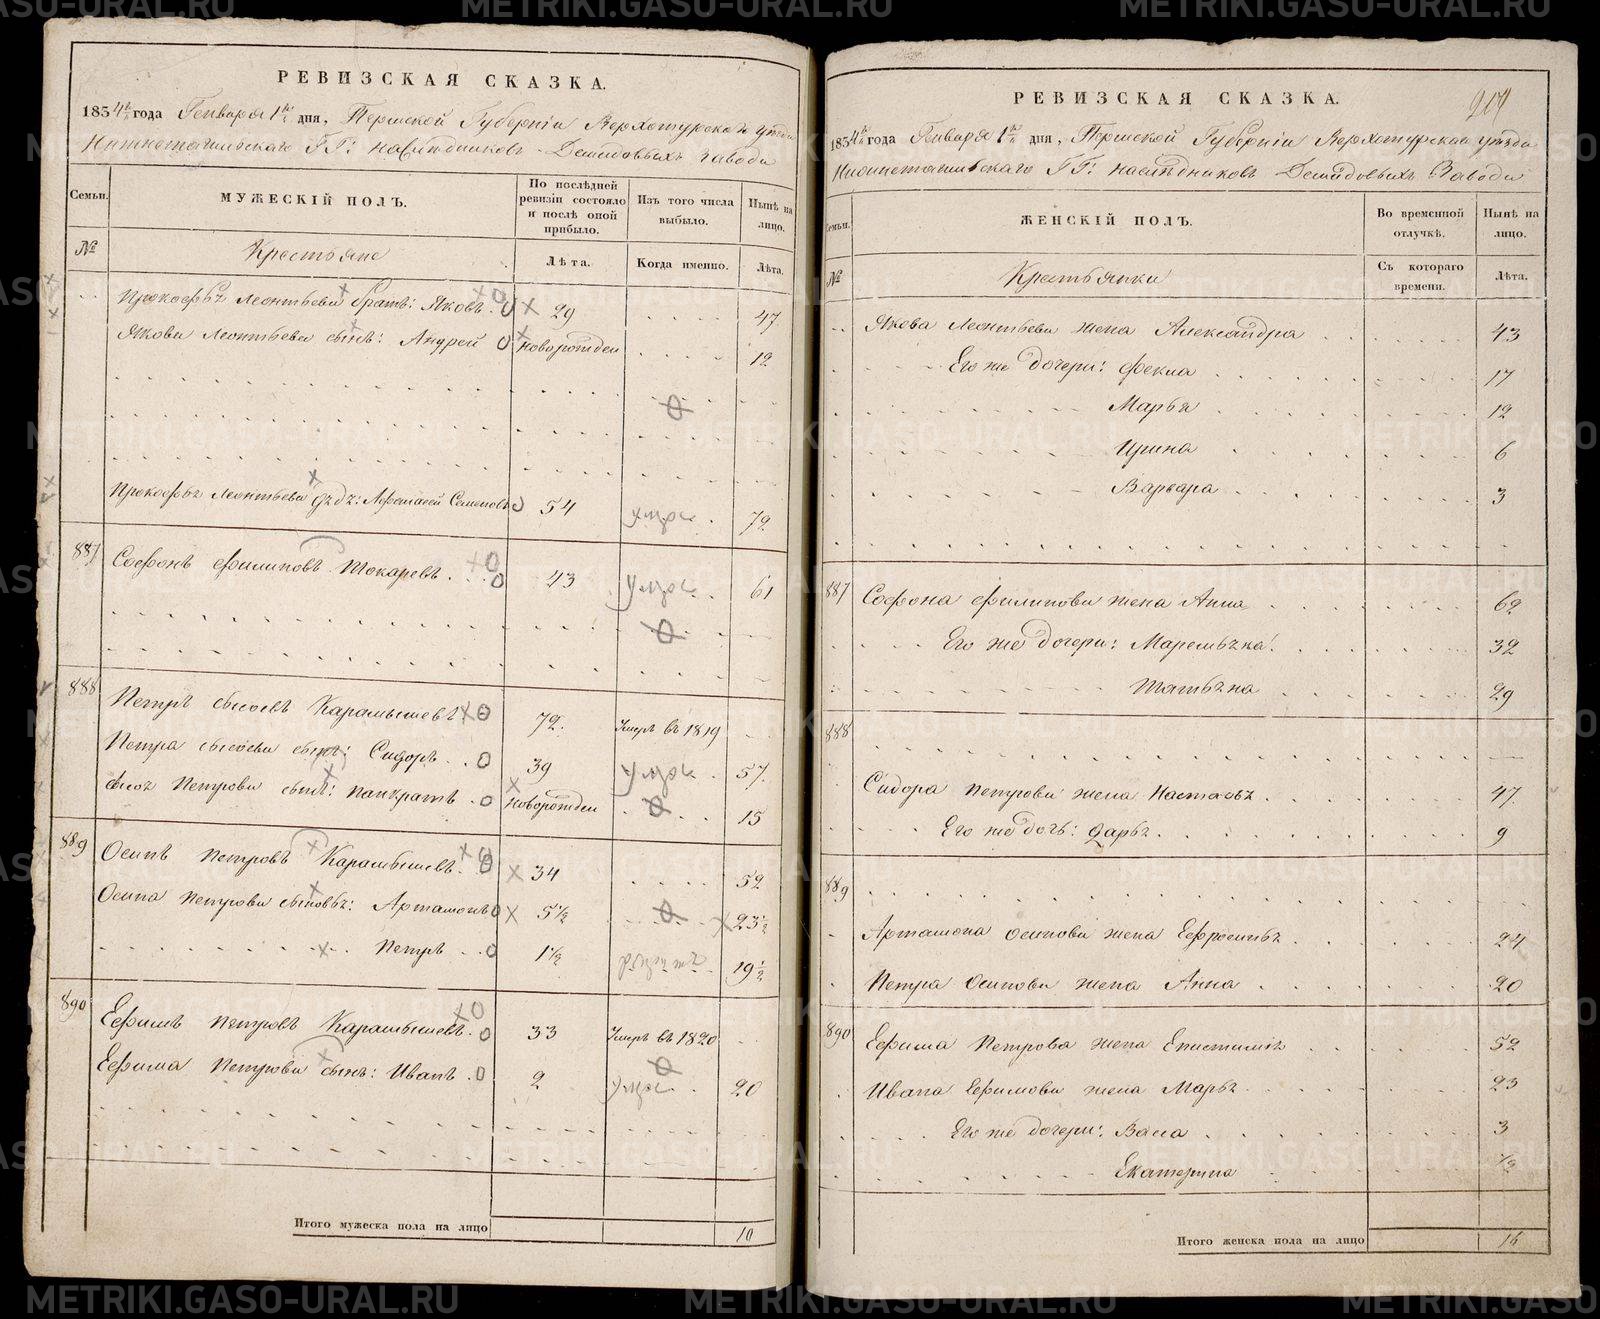 РЕВИЗСКАЯ СКАЗКА.
1834 года Генваря 1 дня, Пермской Губерніи Верхотурскаго уезда
Нижнетагильскаго ГГ: наследниковъ Демидовыхъ Завода
Семьи.
МУЖЕСКІЙ ПОЛЪ.
По послѣдней ревизіи состояло и послѣ оной прибыло.
Изъ того числа выбыло.
Нынѣ на лицо.
№
Крестьяне
Лѣта.
Когда именно.
Лѣта.
Прокофья Леонтьева братъ: Яковъ 29 47
Якова Леонтьева сынъ: Андрей новорожден 12
Прокофья Леонтьева дѣдъ: Семеновъ 54 умре 72
887 Софонъ Филиповъ Токаревъ 43 умре 61
888 Петръ Сысоевъ Карамышевъ 72 Умеръ въ 1819
Петра Сысоева сынъ: Сидоръ 39 умре 57
Петрова сынъ: Панкратъ новорожден 15
889 Осипъ Петровъ Карамышевъ 34 52
Осипа Петрова сыновья: Артамонъ 5½ 23½
Петръ 1½ 19½
890 Ефимъ Петровъ Карамышевъ 33 Умеръ въ 1820
Ефима Петрова сынъ: Иванъ 2 умре 20
Итого мужеска пола на лицо 10
РЕВИЗСКАЯ СКАЗКА.
1834 года Генваря 1 дня, Пермской Губерніи Верхотурскаго уезда
Нижнетагильскаго ГГ: наследниковъ Демидовыхъ Завода
Семьи.
ЖЕНСКІЙ ПОЛЪ.
Во временной отлучкѣ.
Нынѣ на лицо.
№
Крестьянки
Съ котораго времени.
Лѣта.
Якова Леонтьева жена Александра 43
Его же дочери: Фекла 17
Марья 12
Ирина 6
Варвара 3
887 Софона Филипова жена Анна 62
Его же дочери: Маремьяна 32
Татьяна 29
888
Сидора Петрова жена Настасья 47
Его же дочь: Дарья 9
889
Артамона Осипова жена Ефросинья 24
Петра Осипова жена Анна 20
890 Ефима Петрова жена Епистимія 52
Ивана Ефимова жена Марья 23
Его же дочери: Васса 3
Екатерина ½
Итого женска пола на лицо 16
METRIKI.GASO-URAL.RU